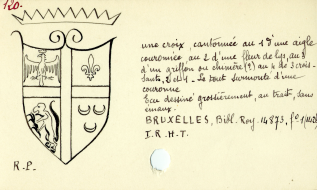 120.
une croix, cantonnée au 1 d'une aigle
couronnée, au 2 d'une fleur de lys, au 3
d'un griffon ou chimère (?) au 4 de 3 crois-
sants, 2 et 1. Le tout surmonté d'une
couronne.
Ecu dessiné grossièrement, au trait, sans
émaux.
BRUXELLES, Bibl. Roy. 14873, f° 1
I.R.H.T.
R.P.